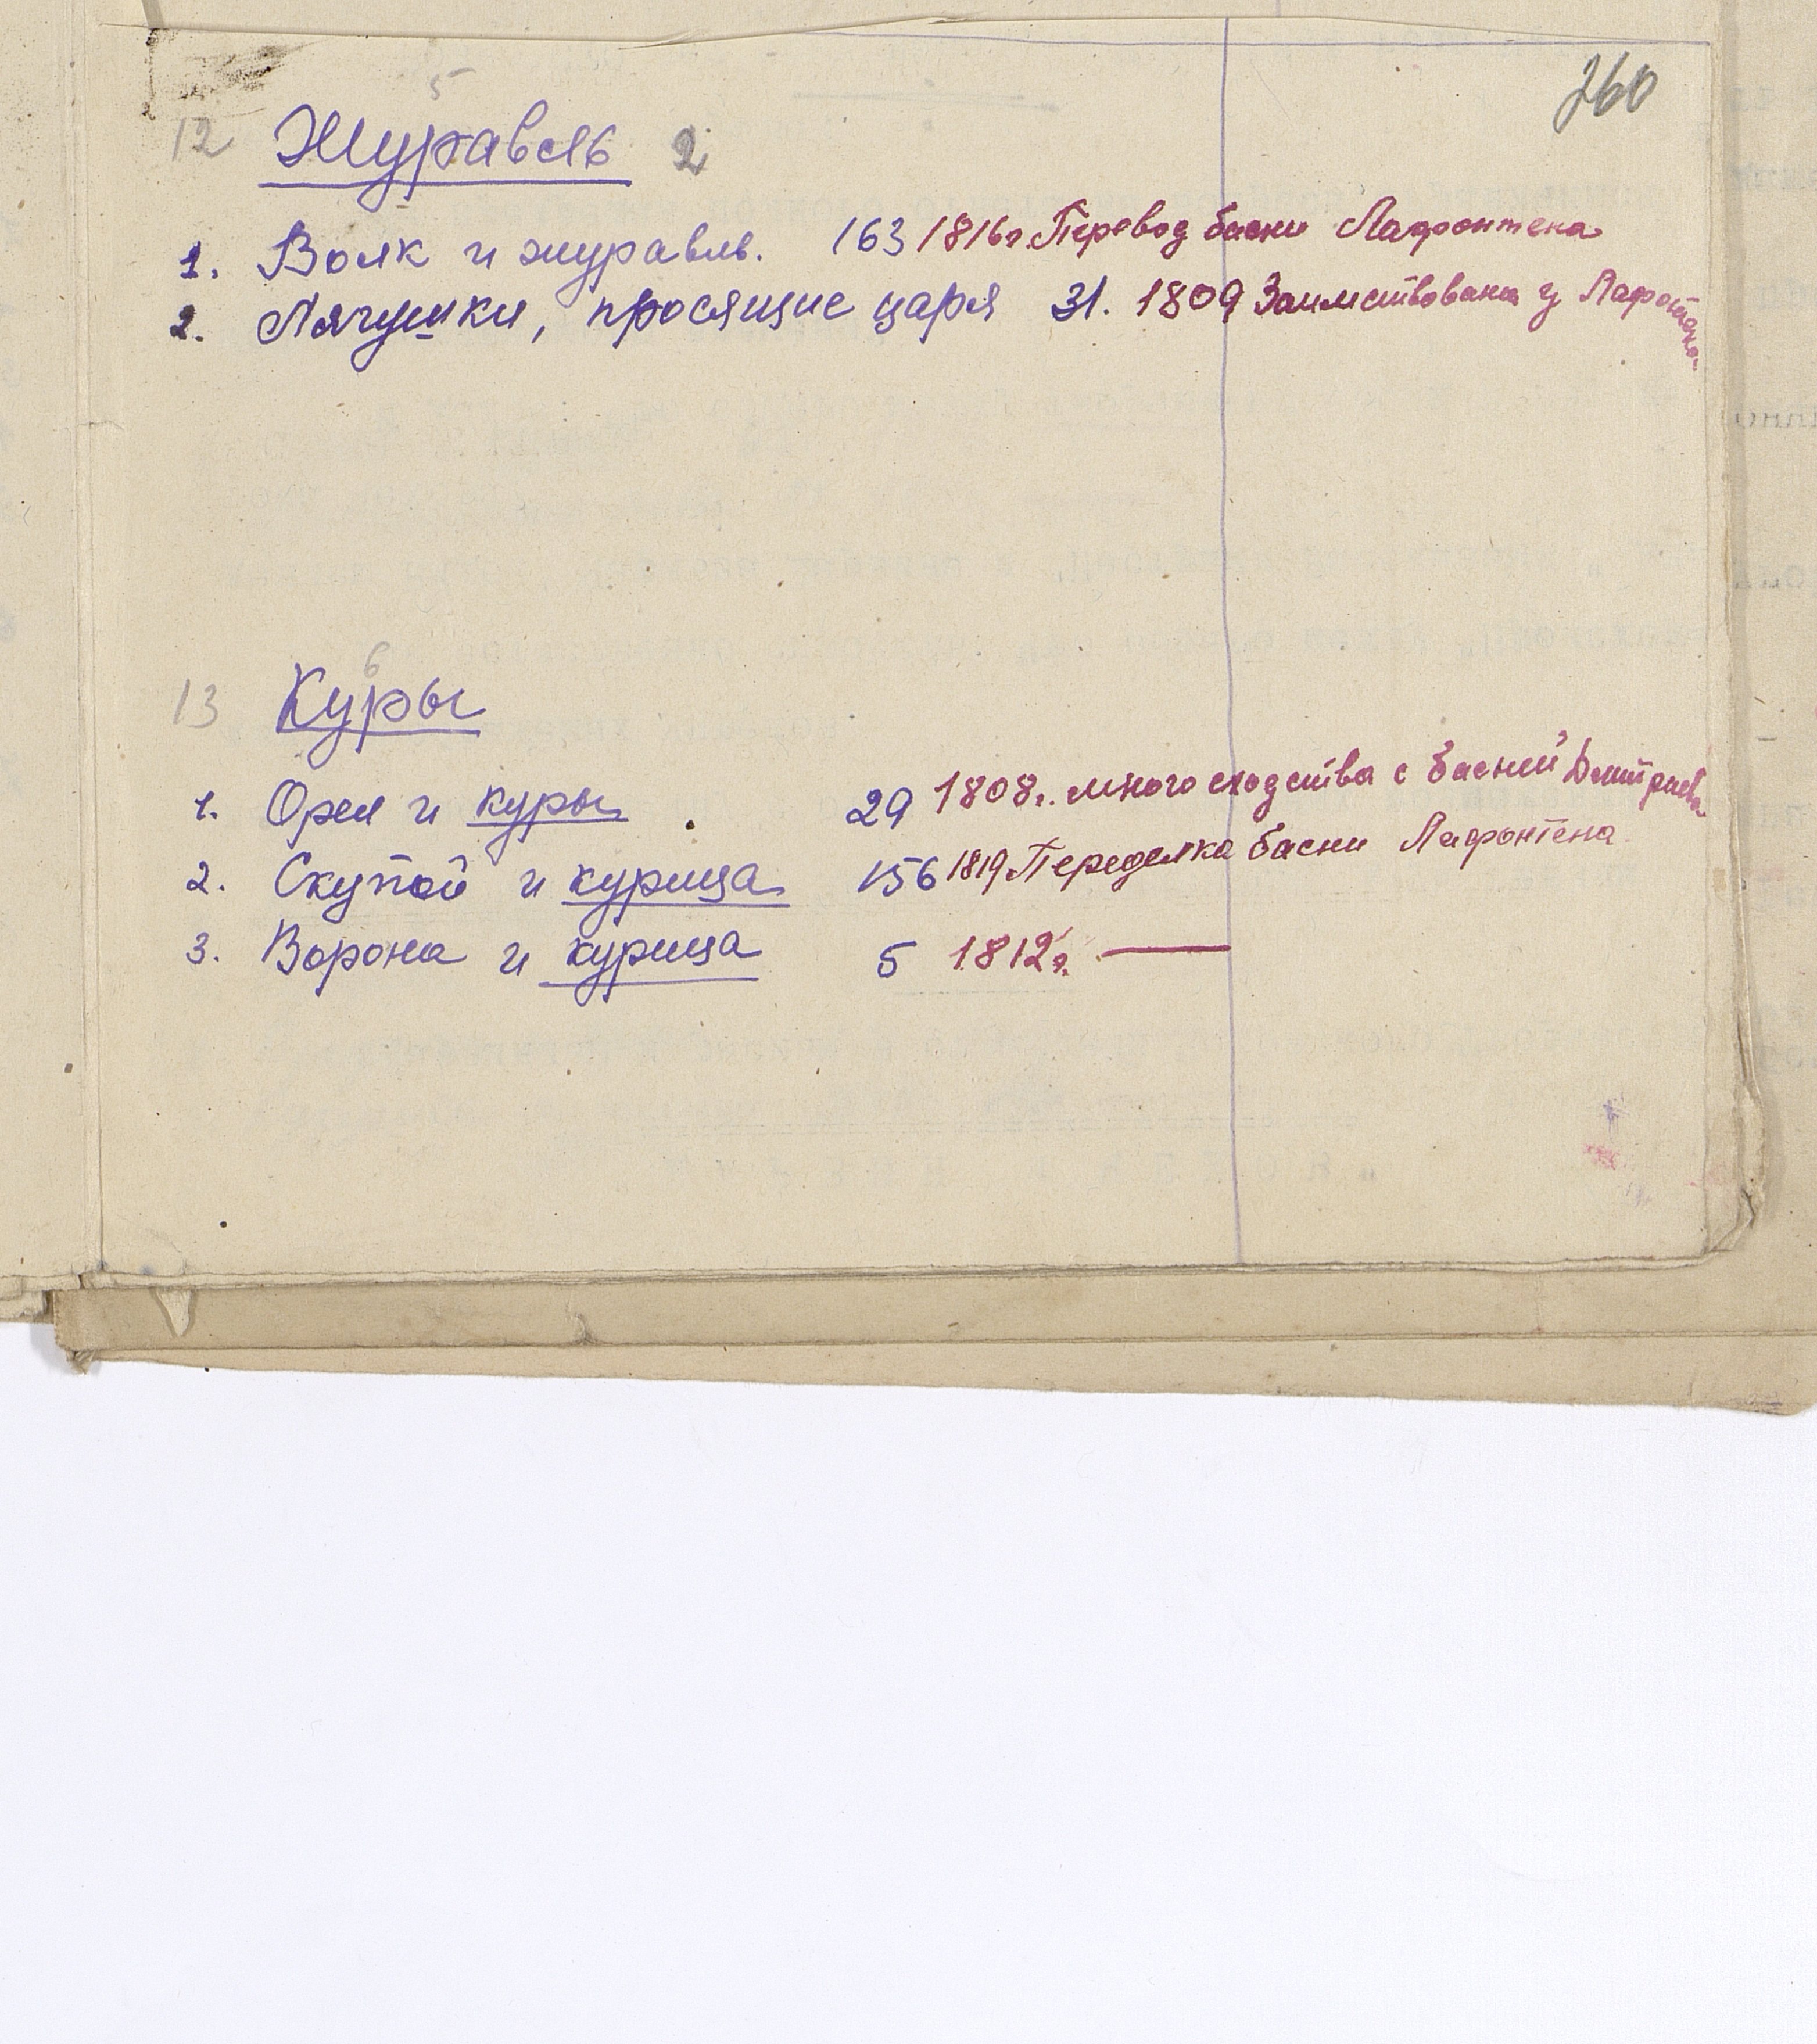 260
5
12 Журавель 2
1. Волк и журавль. 163 1816г. Перевод басни Лафонтена
2. Лягушки, просящие царя 31. 1809 Заимствована у Лафонтена
6
13 Куры
1. Орел и куры 29 1808г. много сходства с басней Дмитриева
2. Скупой и курица 156 1819 Переделка басни Лафонтена
3. Ворона и курица 5 1812г. —